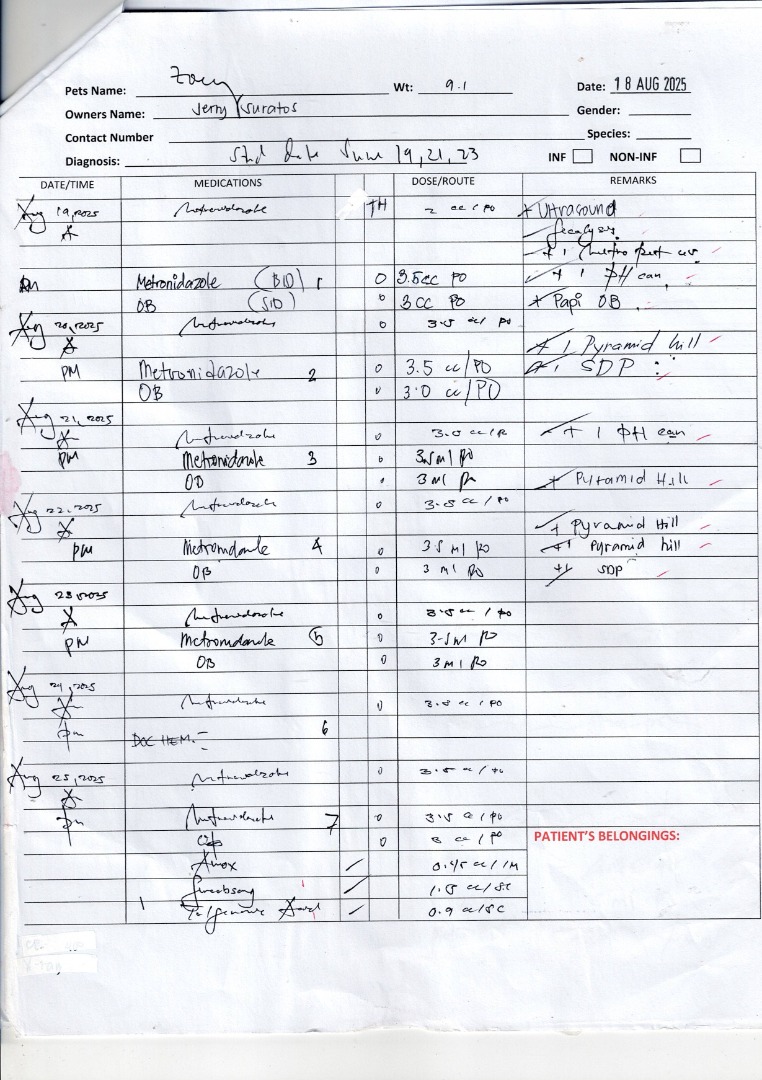 Pets Name: Zoey Wt: 9.1 Date: 18 AUG 2025
Owners Name: Jerry Suratos Gender:
Contact Number Species:
Diagnosis: Std date June 19, 21, 23 INF NON-INF
DATE/TIME MEDICATIONS DOSE/ROUTE REMARKS
Aug 19, 2025 Metronidazole TH 2 cc / PO + Ultrasound
fecalysis
+ 1
PM Metronidazole (BID) 1 0 3.5cc PO + 1 PH can
OB (SID) 0 3 cc PO + Papi OB
Aug 20, 2025 Metronidazole 0 3.5 cc/ PO
+ 1 Pyramid hill
PM Metronidazole 2 0 3.5 cc/PO +1 SDP
OB 0 3.0 cc/PO
Aug 21, 2025
Metronidazole 0 3.5 cc/P + 1 PH can
PM Metronidazole 3 0 3.5ml PO
OB 0 3 ml PO + Pyramid Hill
Aug 22, 2025 Metronidazole 0 3.5 cc / PO
+ Pyramid Hill
PM Metronidazole 4 0 3.5 ml PO +1 Pyramid hill
OB 0 3 ml PO +1 SDP
Aug 23, 2025
Metronidazole 0 3.5 cc / PO
PM Metronidazole 5 0 3.5 ml PO
OB 0 3 ml PO
Aug 24, 2025
Metronidazole 0 3.5 cc / PO
pm DOC HEM. 6
Aug 25, 2025 Metronidazole 0 3.5 cc / PO
pm Metronidazole 7 0 3.5 cc / PO
OB 0 3 cc / PO
PATIENT'S BELONGINGS:
Amox 0.45 cc / IM
1.5 cc/ SC
1 0.9 cc/SC